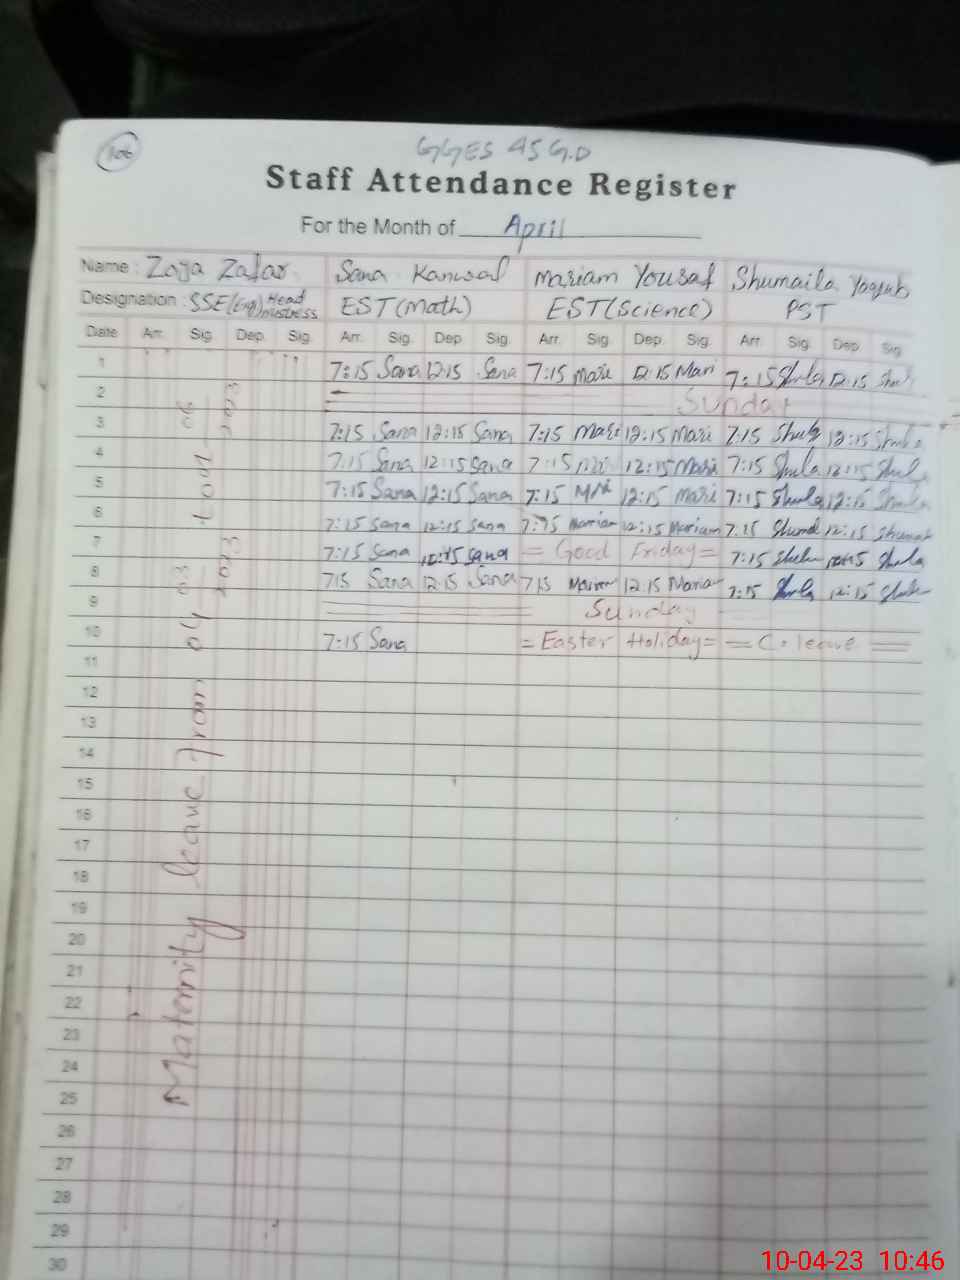 106
GGES 45 G.D
Staff Attendance Register
For the Month of April
Name: Zoya Zafar Sana Kanwal Mariam Yousaf Shumaila Yaqub
Designation: SSE(Eng) Head mistress EST (Math) EST (Science) PST
Date Arr. Sig. Dep. Sig. Arr. Sig. Dep. Sig. Arr. Sig. Dep. Sig. Arr. Sig. Dep. Sig
1 7:15 Sana 12:15 Sana 7:15 Mari 12:15 Mari 7:15 12:15
2 Sunday
3 7:15 Sana 12:15 Sana 7:15 Mari 12:15 Mari 7:15 12:15
4 7:15 Sana 12:15 Sana 7:15 12:15 Mari 7:15 Shula 12:15
5 7:15 Sana 12:15 Sana 7:15 12:15 Mari 7:15 Shula 12:15
6 7:15 Sana 12:15 Sana Mariam 12:15 Mariam 7:15 12:15
7 7:15 Sana Sana = Good Friday = 7:15 Shula
8 7:15 Sana 12:15 Sana 7:15 Mariam 12:15 7:15 Shula 12:15
9 Sunday
10 7:15 Sana = Easter Holiday = = C. leave =
11
12
13
14
15
16
17
18
19
20
21
22
23
24
25
26
27
28
29
30
Maternity leave from 04 03 2023
10-04-23 10:46